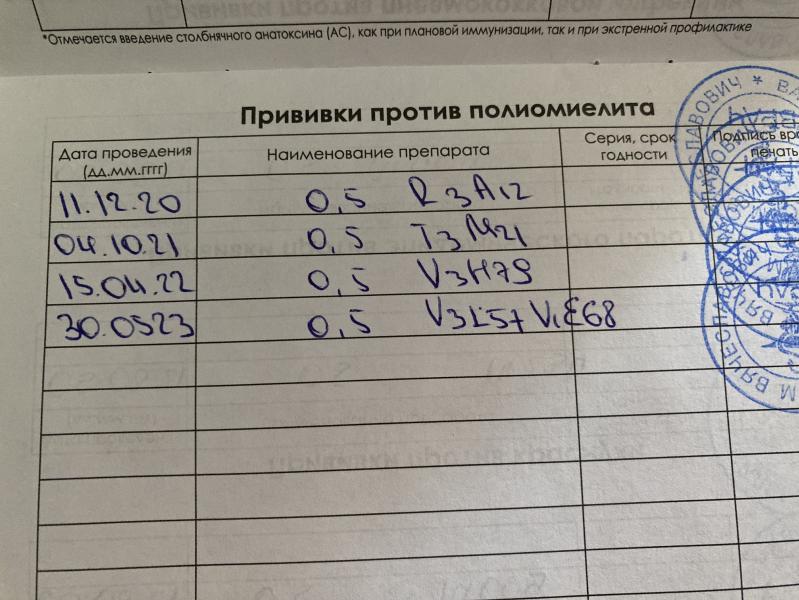 *Отмечается введение столбнячного анатоксина (АС), как при плановой иммунизации, так и при экстренной профилактике
Прививки против полиомиелита
Дата проведения (дд.мм.гггг) Наименование препарата Серия, срок годности Подпись печать
11.12.20 0,5 R3A12
04.10.21 0,5 T3M21
15.04.22 0,5 V3H79
30.0523 0,5 V3L57 V1E68